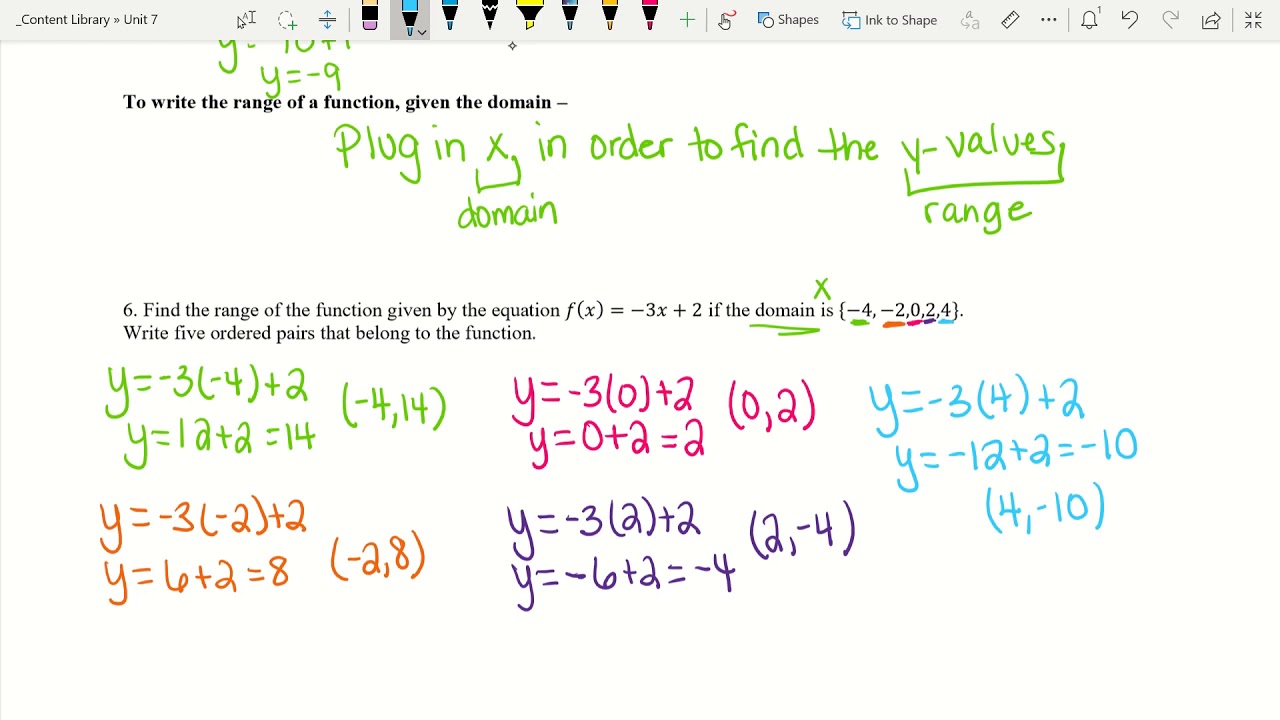 _Content Library » Unit 7
Shapes
Ink to Shape
y=-9
To write the range of a function, given the domain –
Plug in x, in order to find the y-values,
domain
range
x
6. Find the range of the function given by the equation f(x) = −3x + 2 if the domain is {−4, −2,0,2,4}.
Write five ordered pairs that belong to the function.
y=-3(-4)+2 (-4,14)
y=12+2=14
y=-3(0)+2 (0,2)
y=0+2=2
y=-3(4)+2
y=-12+2=-10
(4,-10)
y=-3(-2)+2
y=6+2=8 (-2,8)
y=-3(2)+2 (2,-4)
y=-6+2=-4